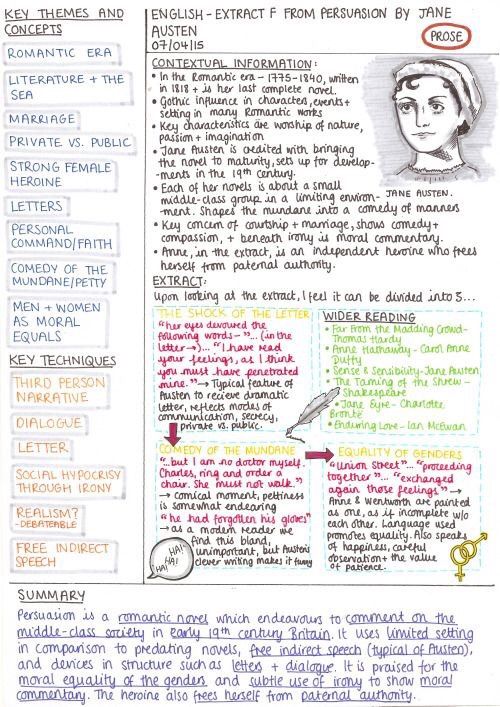 KEY THEMES AND
CONCEPTS
ROMANTIC ERA
LITERATURE + THE
SEA
MARRIAGE
PRIVATE VS. PUBLIC
STRONG FEMALE
HEROINE
LETTERS
PERSONAL
COMMAND/FAITH
COMEDY OF THE
MUNDANE/PETTY
MEN + WOMEN
AS MORAL
EQUALS
KEY TECHNIQUES
THIRD PERSON
NARRATIVE
DIALOGUE
LETTER
SOCIAL HYPOCRISY
THROUGH IRONY
REALISM?
-DEBATEABLE
FREE INDIRECT
SPEECH
ENGLISH - EXTRACT F FROM PERSUASION BY JANE
AUSTEN
07/04/15
PROSE
CONTEXTUAL INFORMATION:
• In the Romantic era - 1775-1840, written
in 1818 + is her last complete novel.
• Gothic influence in characters, events +
setting in many Romantic works
• Key characteristics are worship of nature,
passion + imagination
• Jane Austen is credited with bringing
the novel to maturity, sets up for develop-
-ments in the 19th century.
• Each of her novels is about a small
middle-class group in a limiting environ-
-ment. Shapes the mundane into a comedy of manners
JANE AUSTEN.
• Key concern of courtship + marriage, shows comedy +
compassion, + beneath irony is moral commentary.
• Anne, in the extract, is an independent heroine who frees
herself from paternal authority.
EXTRACT:
Upon looking at the extract, I feel it can be divided into 3...
THE SHOCK OF THE LETTER
"her eyes devoured the
following words-"... (in the
letter→)... "I have read
your feelings, as I think
you must have penetrated
mine." → Typical feature of
Austen to recieve dramatic
letter, reflects modes of
communication, secrecy,
private vs. public.
WIDER READING
• Far From the Madding Crowd-
Thomas Hardy
• Anne Hathaway - Carol Anne
Duffy
• Sense & Sensibility - Jane Austen
• The Taming of the Shrew -
Shakespeare
• Jane Eyre - Charlotte
Bronte
• Enduring Love - Ian McEwan
COMEDY OF THE MUNDANE
"...but I am no doctor myself.
Charles, ring and order a
chair. She must not walk."
→ comical moment, pettiness
is somewhat endearing
"he had forgotten his gloves"
→ as a modern reader we
find this bland,
unimportant, but Austen's
clever writing makes it funny
HA!
HA!
HA!
EQUALITY OF GENDERS
"Union Street"... "proceeding
together"... "exchanged
again those feelings" →
Anne & Wentworth are painted
as one, as if incomplete w/o
each other. Language used
promotes equality. Also speaks
of happiness, careful
observation + the value
of patience.
SUMMARY
Persuasion is a romantic novel which endeavours to comment on the
middle-class society in early 19th century Britain. It uses limited setting
in comparison to predating novels, free indirect speech (typical of Austen),
and devices in structure such as letters + dialogue. It is praised for the
moral equality of the genders and subtle use of irony to show moral
commentary. The heroine also frees herself from paternal authority.